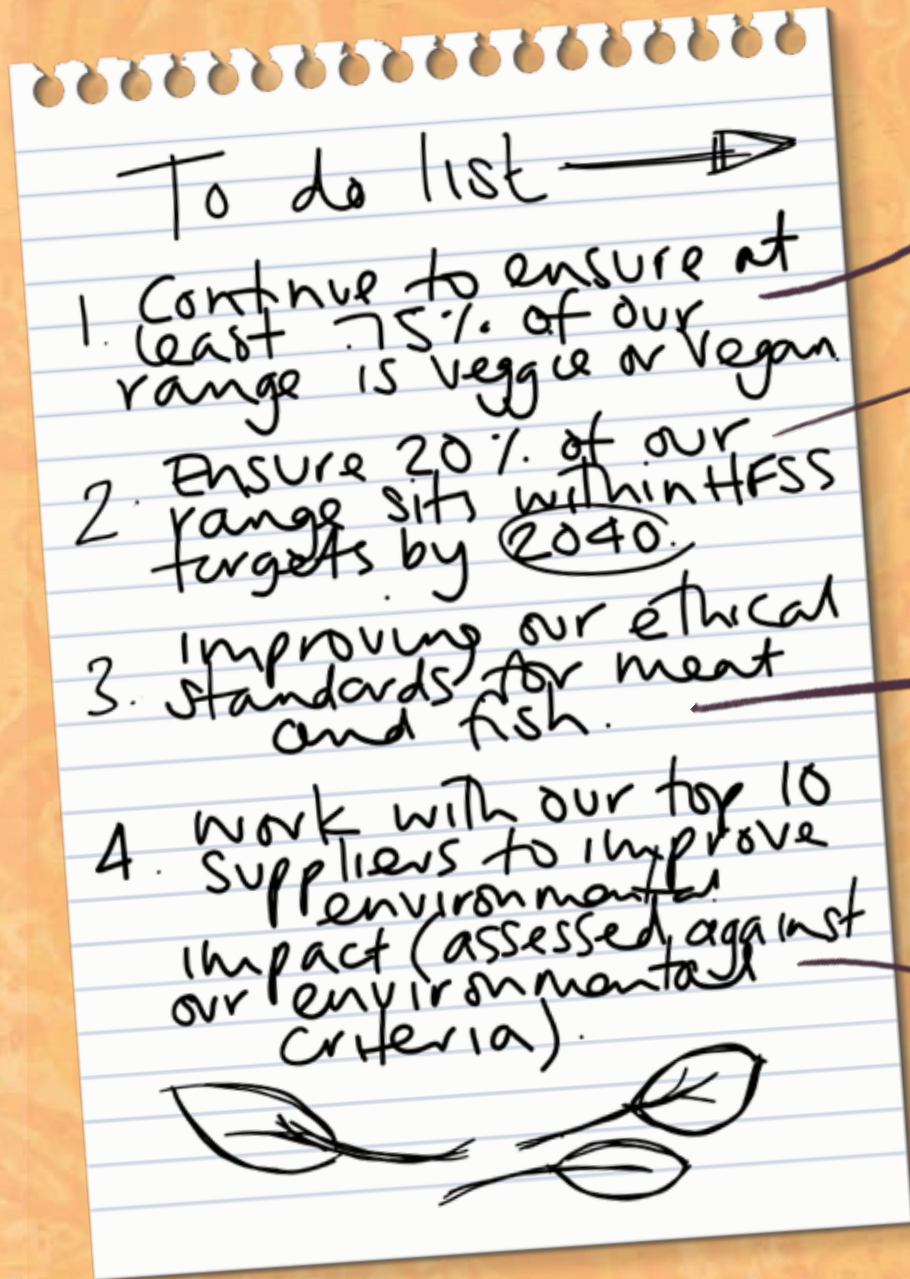 To do list
1. Continue to ensure at
least 75% of our
range is veggie or vegan
2. Ensure 20% of our
range sits within HFSS
targets by 2040.
3. improving our ethical
standards for meat
and fish.
4. work with our top 10
suppliers to improve
environmental
impact (assessed against
our environmental
criteria).